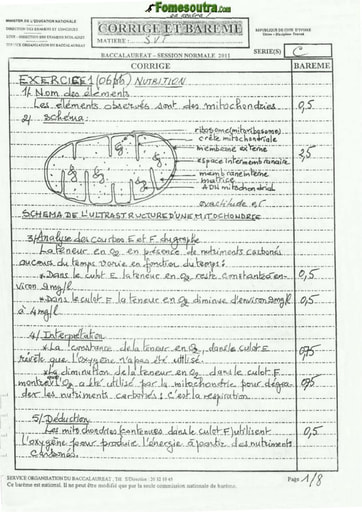 Fomesoutra.com
MINISTERE DE L'EDUCATION NATIONALE
CORRIGE ET BAREME
REPUBLIQUE DE COTE D'IVOIRE
MATIERE : SVT
SERIE(S) C
BACCALAUREAT - SESSION NORMALE 2011
CORRIGE
BAREME
EXERCICE 1 (06pts) NUTRITION
1/ Nom des éléments
Les éléments observés sont des mitochondries 0,5
2/ Schéma:
ribosome (mitoribosome)
crête mitochondriale
membrane externe
espace intermembranaire
3,5
membrane interne
matrice
ADN mitochondrial
exactitude 0,5
SCHEMA DE L'ULTRASTRUCTURE D'UNE MITOCHONDRIE
3/ Analyse des courbes E et F du graphe
La teneur en O2 en présence de nutriments carbonés
au cours du temps varie en fonction du temps :
* Dans le culot E la teneur en O2 reste constante à en-
viron 9mg/l 0,5
* Dans le culot F la teneur en O2 diminue d'environ 9mg/l
à 4mg/l 0,5
4/ Interprétation
* La constance de la teneur en O2 dans le culot E
révèle que l'oxygène n'a pas été utilisé. 0,75
* La diminution de la teneur en O2 dans le culot F
montre l'O2 a été utilisé par la mitochondrie pour dégra-
der les nutriments carbonés : c'est la respiration 0,75
5/ Déduction
Les mitochondries contenues dans le culot F utilisent
l'oxygène pour produire l'énergie à partir des nutriments
carbonés. 0,5
SERVICE ORGANISATION DU BACCALAUREAT
Page 1/8
Ce barème est national. Il ne peut être modifié que par la seule commission nationale de barème.